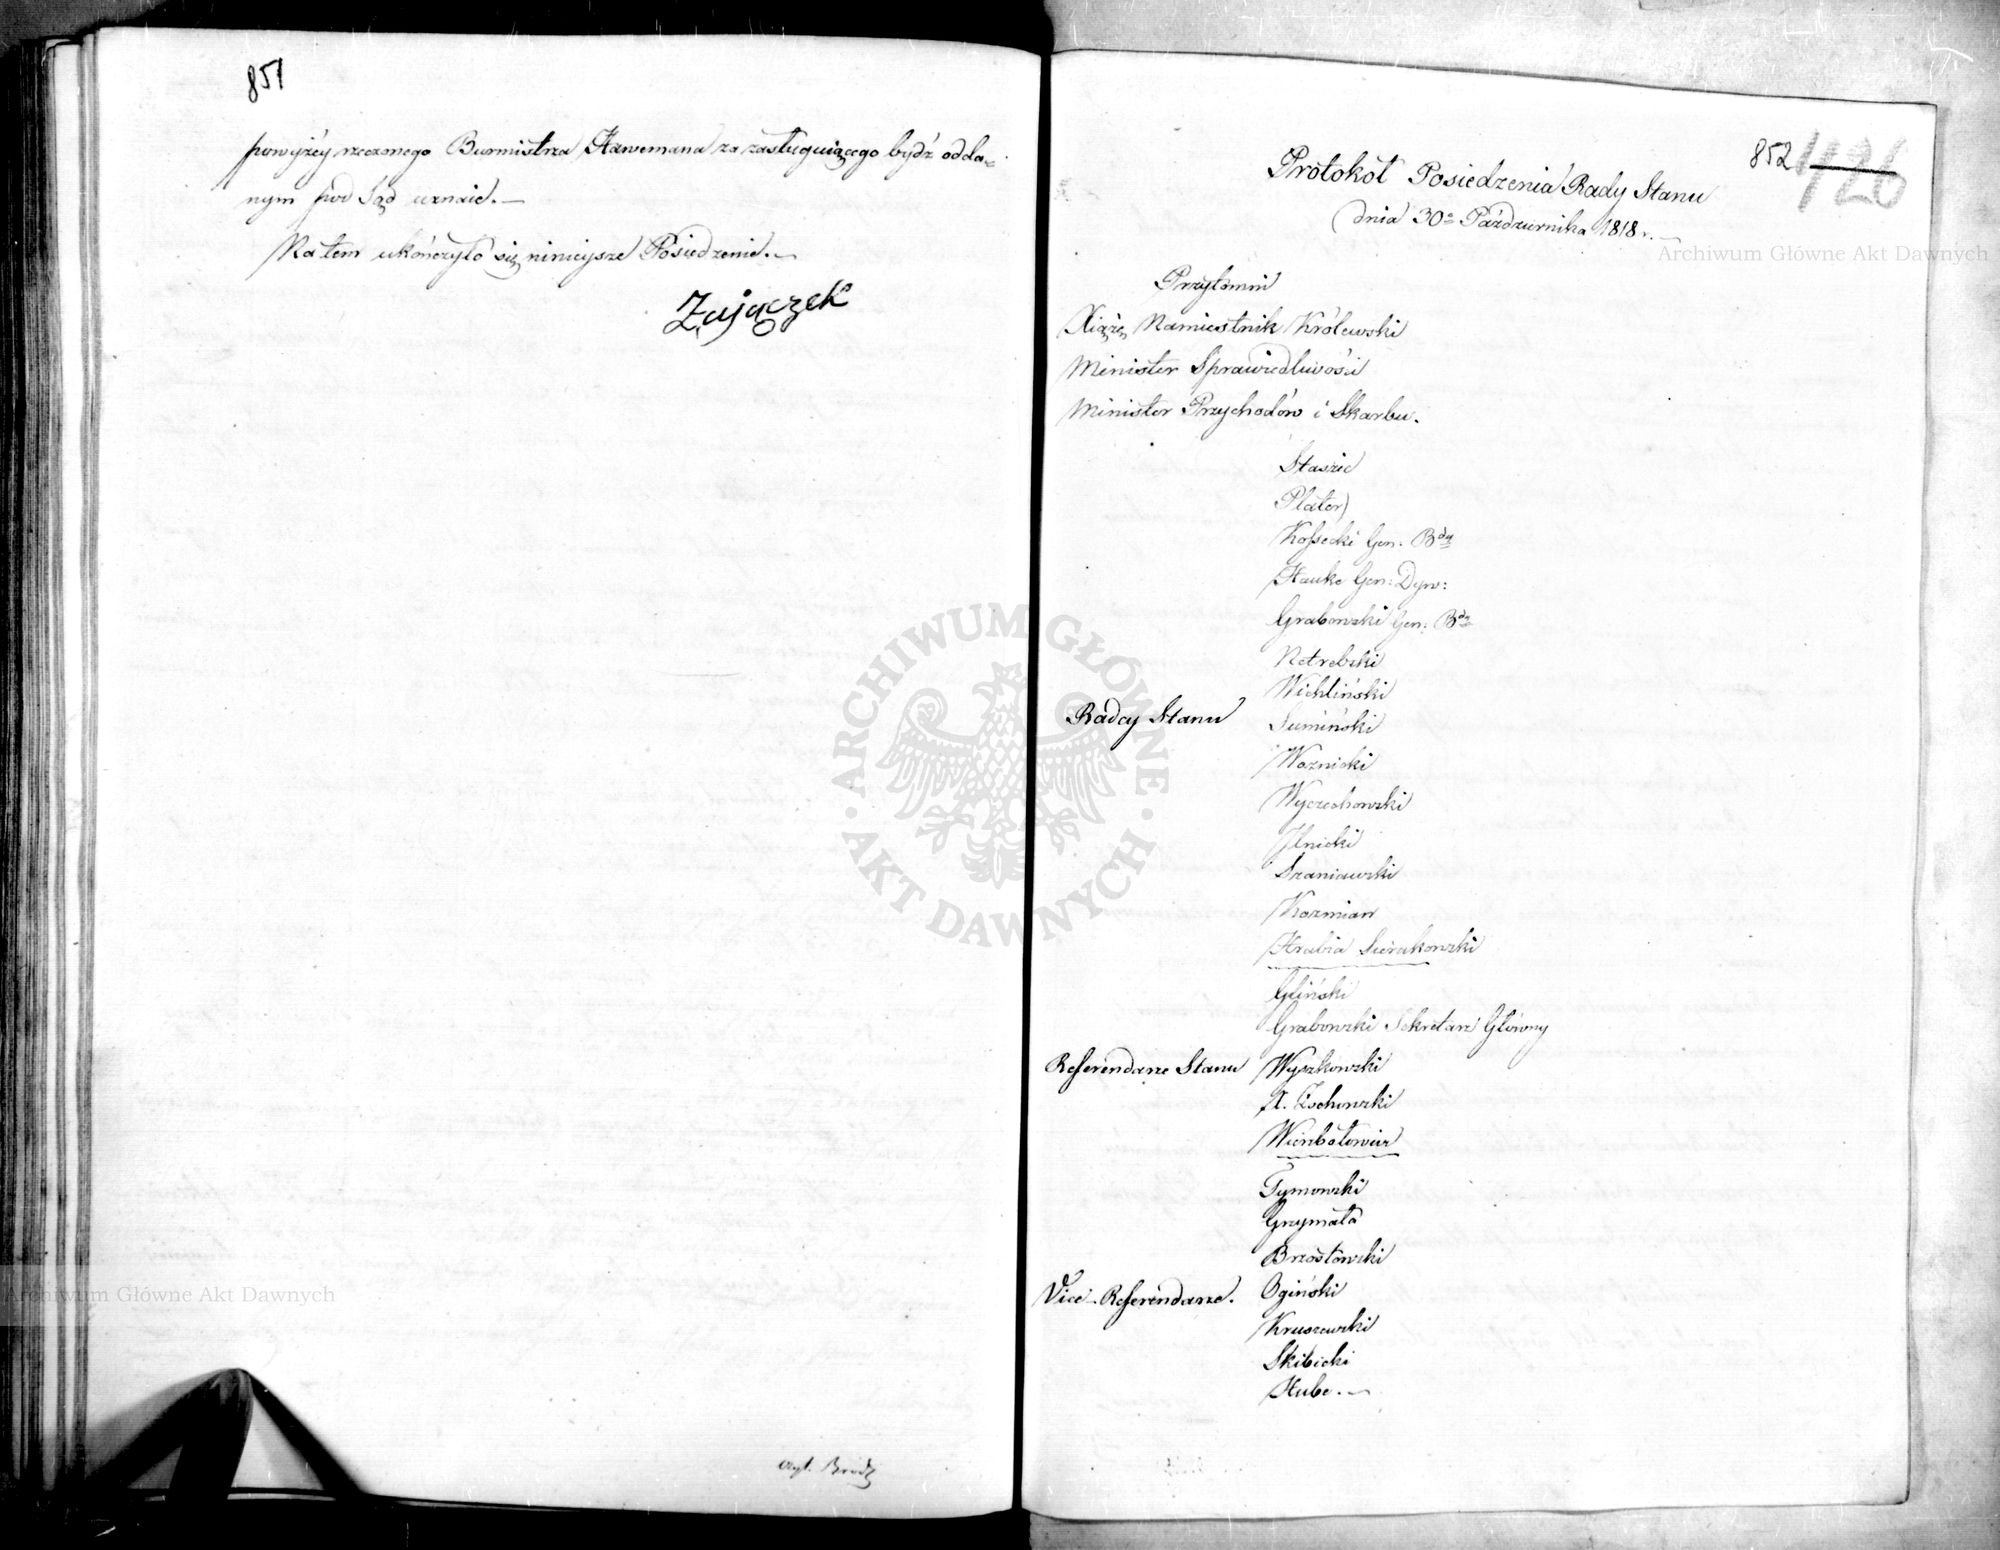 851
powyżéy rzeczonego Burmistrza Hawemana za zasługuiącego bydź odda-
nym pod Sąd uznaie. —
Na tem ukończyło się ninieysze Posiedzenie. —
Zajączek
czyt. Brodz
852
1126
Protokół Posiedzenia Rady Stanu
dnia 30º Października 1818 r. —
Przytomni
Xiążę Namiestnik Królewski
Minister Sprawiedliwości
Minister Przychodów i Skarbu.
Staszic
Plater
Kossecki Gen: Bdy
Hauke Gen: Dyw:
Grabowski Gen: Bdy
Netrebski
Wichliński
Radcy Stanu
Sumiński
Woznicki
Wyczechowski
Ilnicki
Szaniawski
Kozmian
Hrabia Sierakowski
Gliński
Grabowski Sekretarz Główny
Referendarze Stanu Wyszkowski
X. Żochowski
Tymowski
Grzymała
Brzostowski
Vice-Referendarze. Ogiński
Kruszewski
Skibicki
Hube. —
Archiwum Główne Akt Dawnych
ARCHIWUM GŁÓWNE AKT DAWNYCH
Archiwum Główne Akt Dawnych